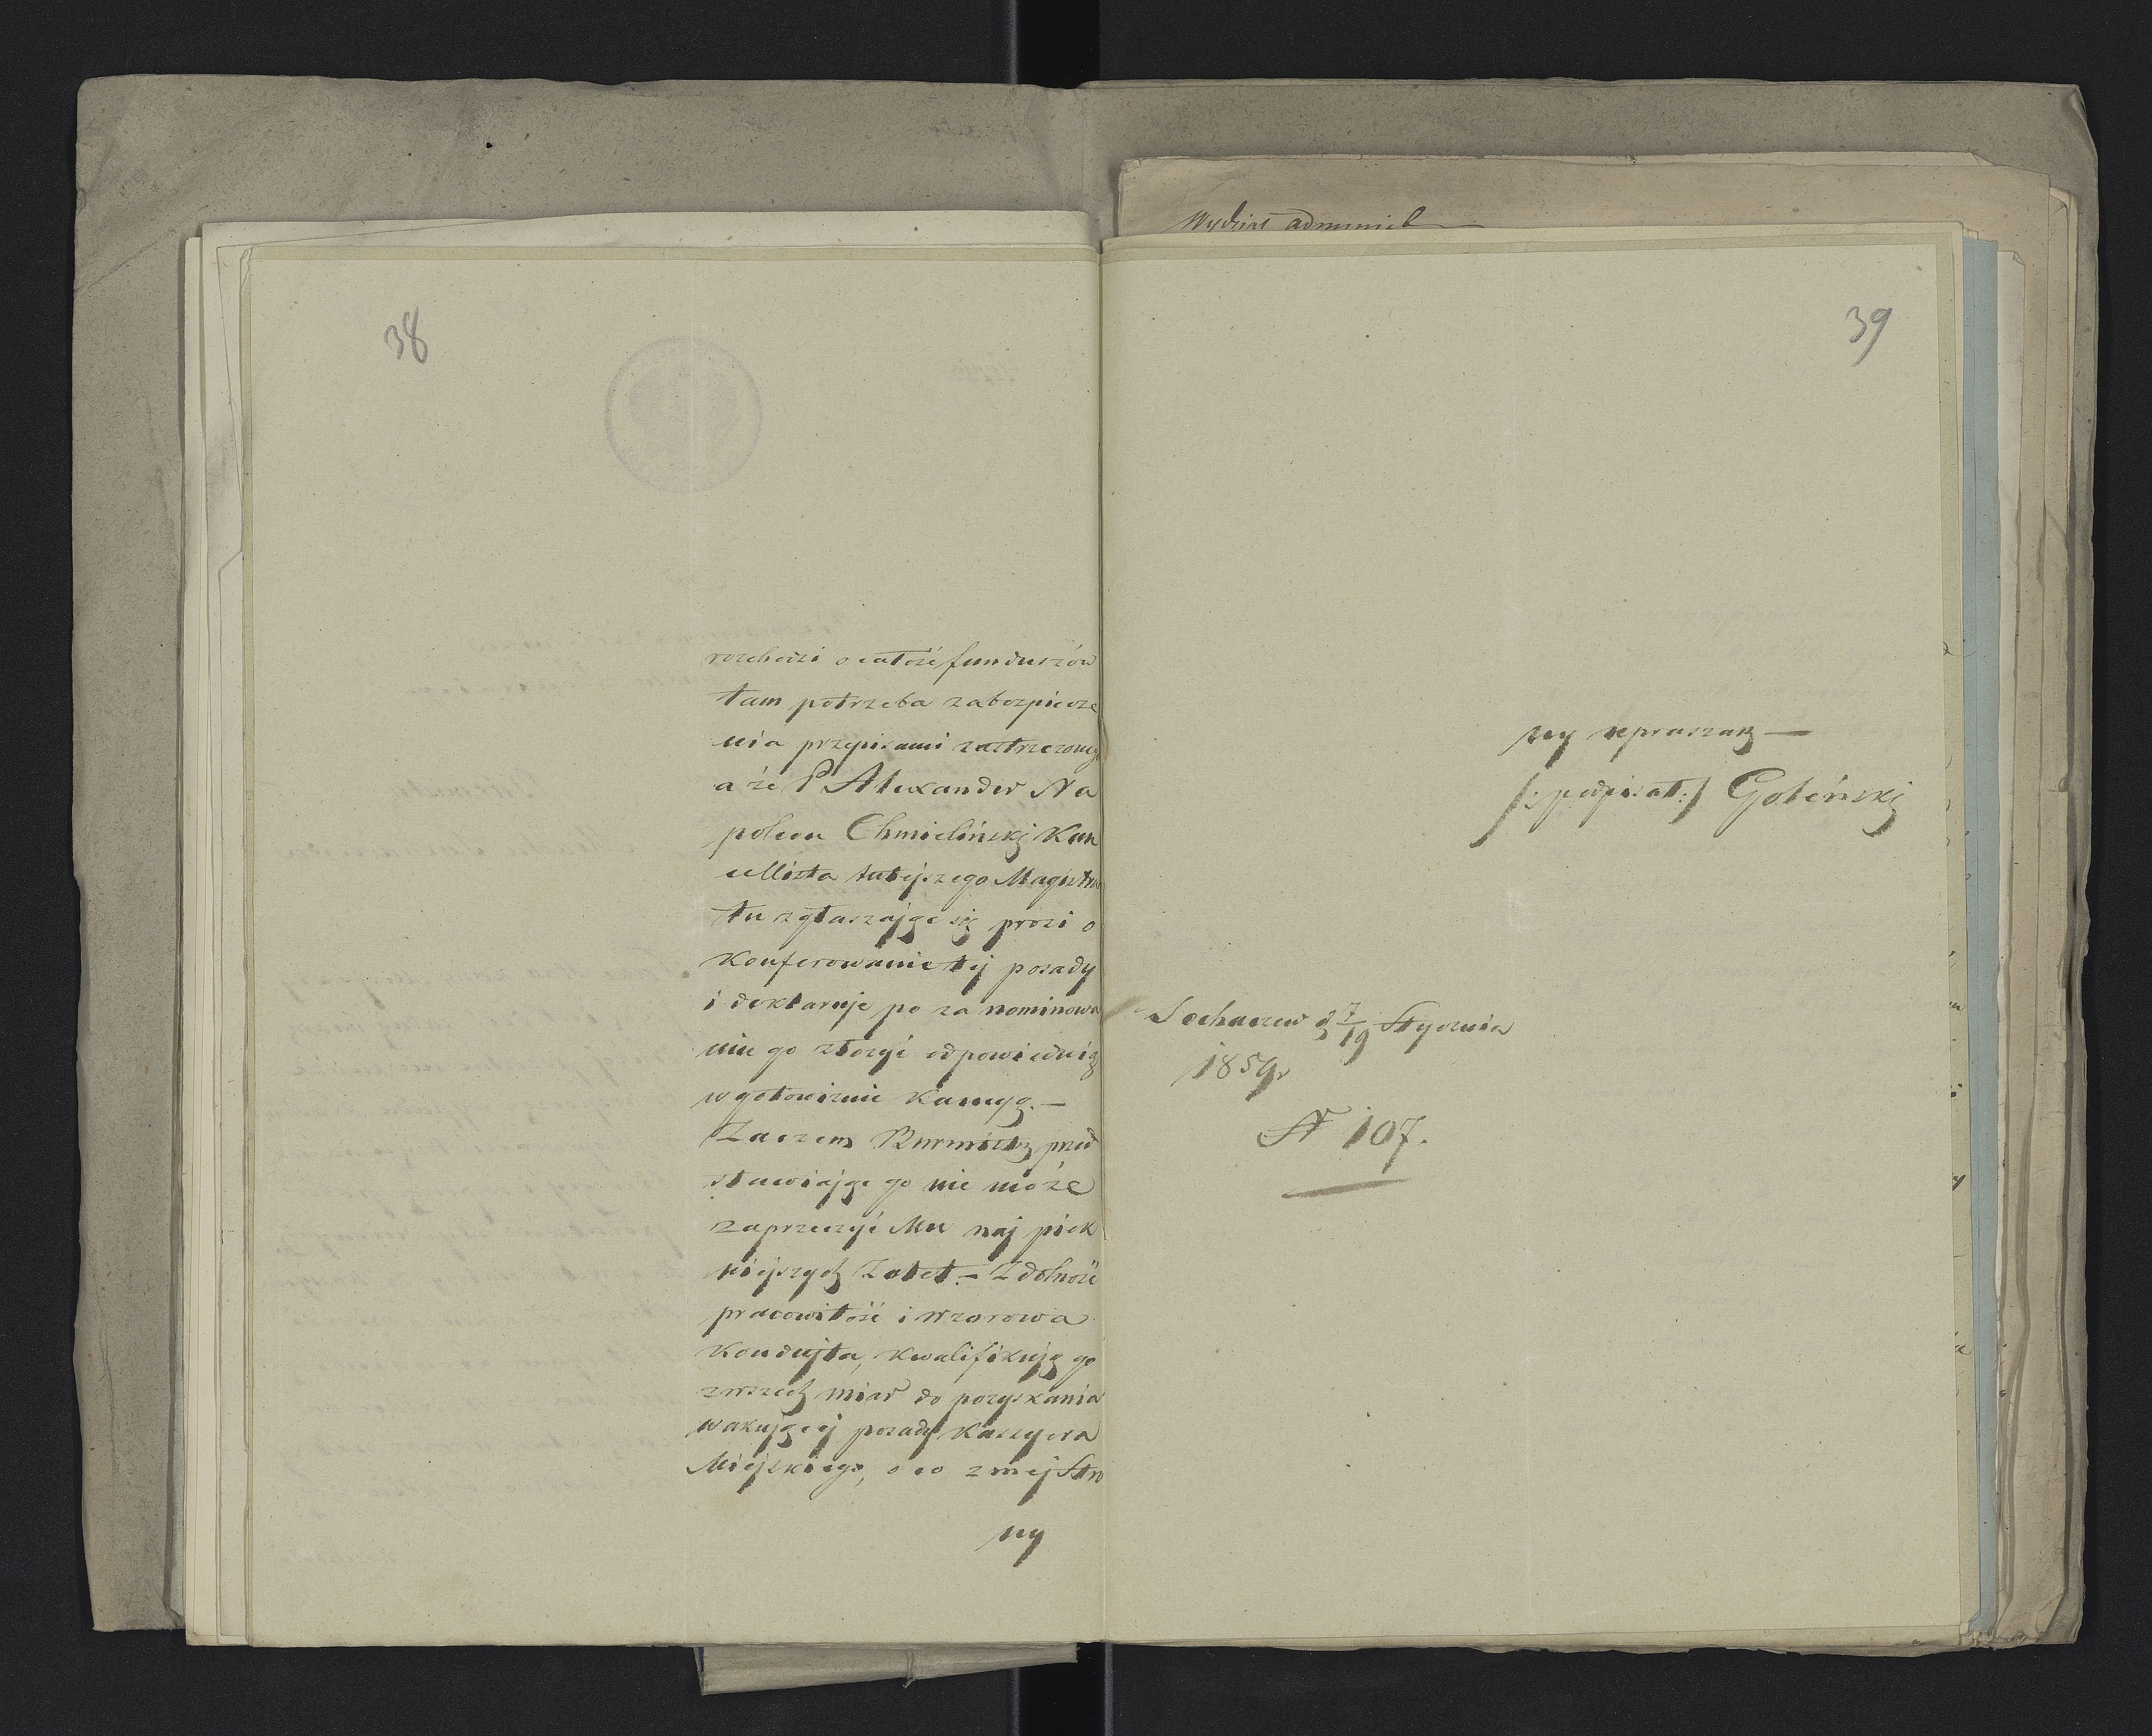 38
rozchodzi o całość funduszów
tam potrzeba zabezpiecze
nia przepisami zastrzeżonego
a że P Alexander Na
poleon Chmieliński Kan
cellista tutejszego Magistra
tu zgłaszając się prosi o
Konferowanie tej posady
i deklaruje po za nominowa
niu go złożyć odpowiednią
w gotowiznie Kaucyą.—
Zaczem Burmistrz przed
stawiając go nie może
zaprzeczyć Mu naj pięk
niejszych Zalet.— Zdolność
pracowitość i wzorowa
Kondujta, kwalifikują go
z wszech miar do pozyskania
wakującej posady Kassyera
Miejskiego, o co z mej Stro
ny
Wydział administ
39
ny upraszam —
/: podpisał :/ Goleński
Sochaczew d 7/19 Stycznia
1859r
N 107.